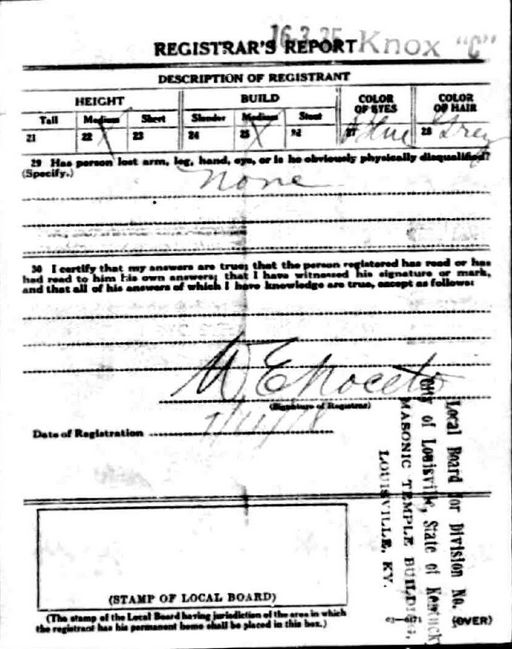 16-3-35 Knox "C"
REGISTRAR'S REPORT
DESCRIPTION OF REGISTRANT
HEIGHT BUILD COLOR OF EYES COLOR OF HAIR
Tall Medium Short Slender Medium Stout
21 22 X 23 24 25 X 26 27 Blue 28 Grey
29 Has person lost arm, leg, hand, eye, or is he obviously physically disqualified?
(Specify.) none
30 I certify that my answers are true; that the person registered has read or has
had read to him his own answers; that I have witnessed his signature or mark,
and that all of his answers of which I have knowledge are true, except as follows:
(Signature of Registrar)
Date of Registration
Local Board for Division No.
City of Louisville, State of Kentucky
MASONIC TEMPLE BUILDING,
LOUISVILLE, KY.
(STAMP OF LOCAL BOARD)
(The stamp of the Local Board having jurisdiction of the area in which
the registrant has his permanent home shall be placed in this box.)
(OVER)